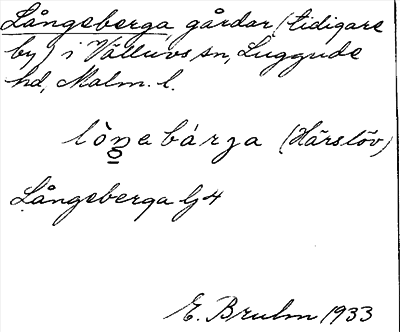 Långeberga gårdar (tidigare
by) i Välluvs sn, Luggude
hd, Malm. l.
(Härslöv)
Långeberga G4
E. Bruhn 1933